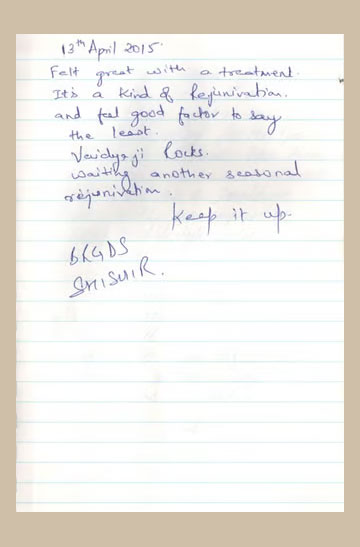 13th April 2015.
Felt great with a treatment.
It's a kind of Rejunivation.
and feel good factor to say
the least.
Vaidyaji Rocks.
waiting another seasonal
rejunivation.
Keep it up.
SHISHIR.